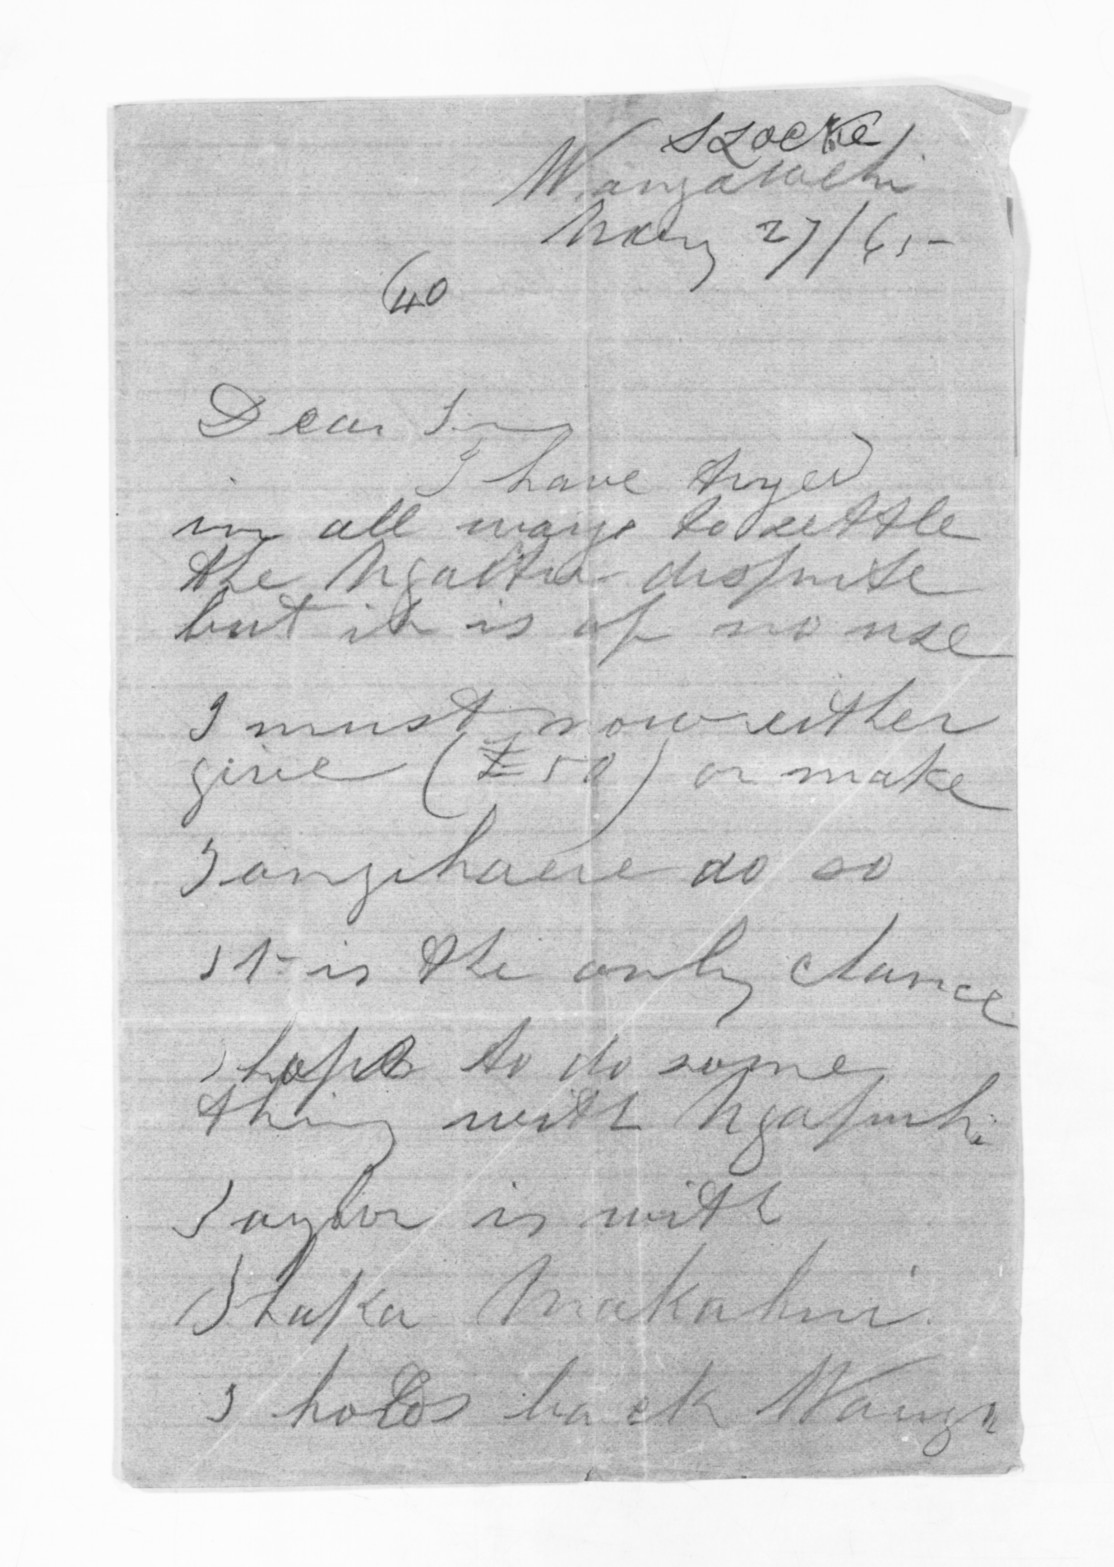 S Locke
May 27/65
(40
Dear Sir
I have tryed
in all ways to settle
the dispute
but it is of no use
I must now either
give (£50) or make
Tangihaere do so
It is the only chance
I hope to do some
thing with Ngapuhi
Taylor is with
Ihaka Makahuri
I holds back